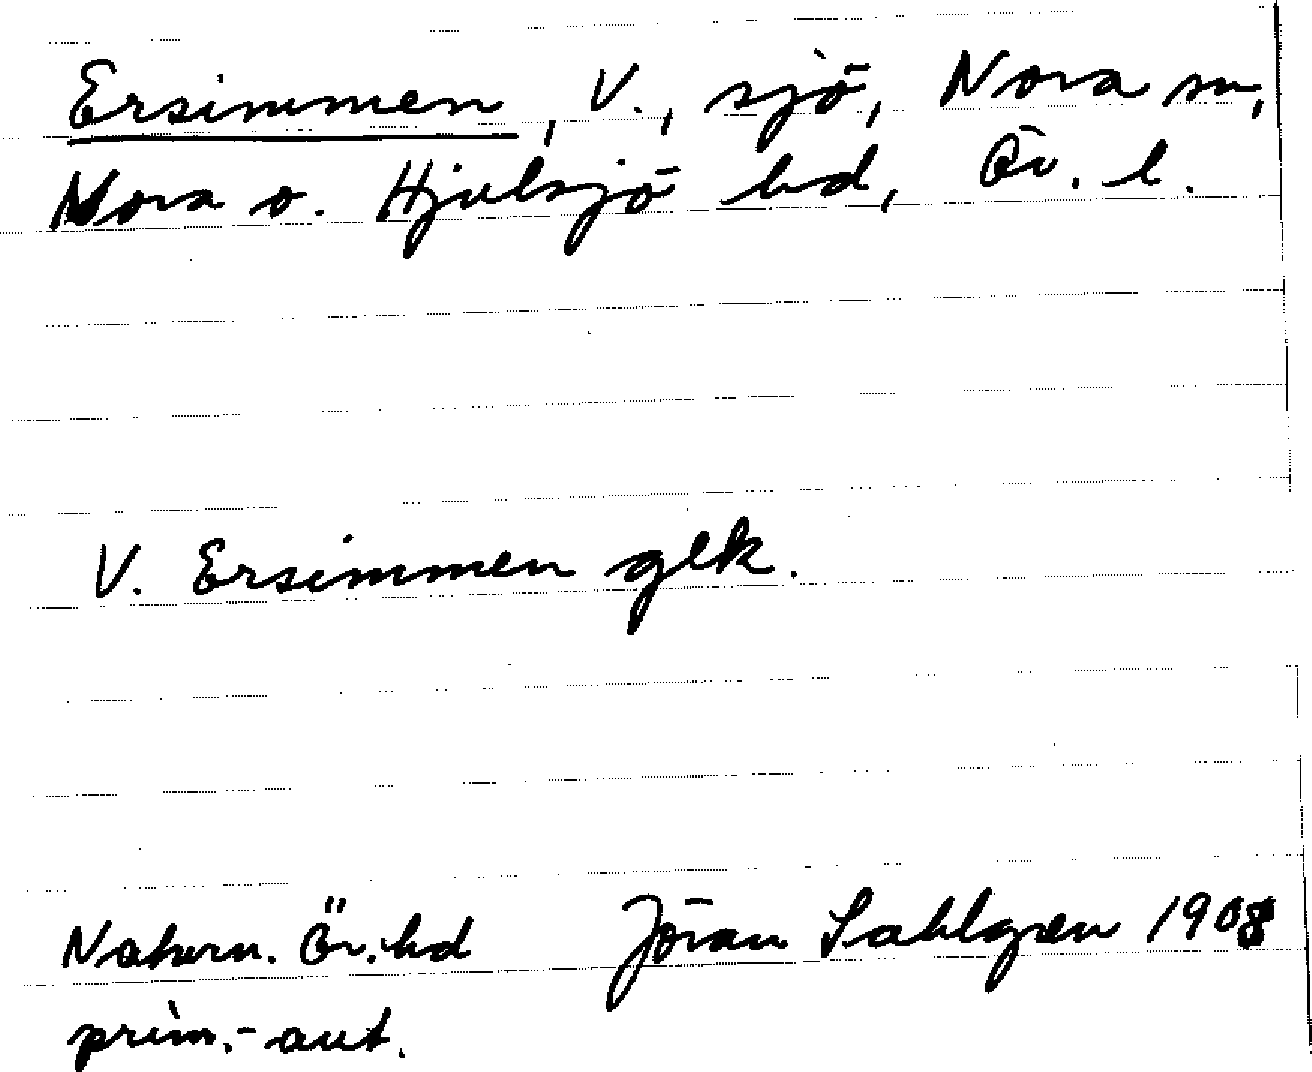 Ersimmen, V., sjö, Nora sn,
Nora o. Hjulsjö bd, Ör. l.
V. Ersimmen glk.
Naturn. Ör. bd Jöran Sahlgren 1908
prim.-aut.